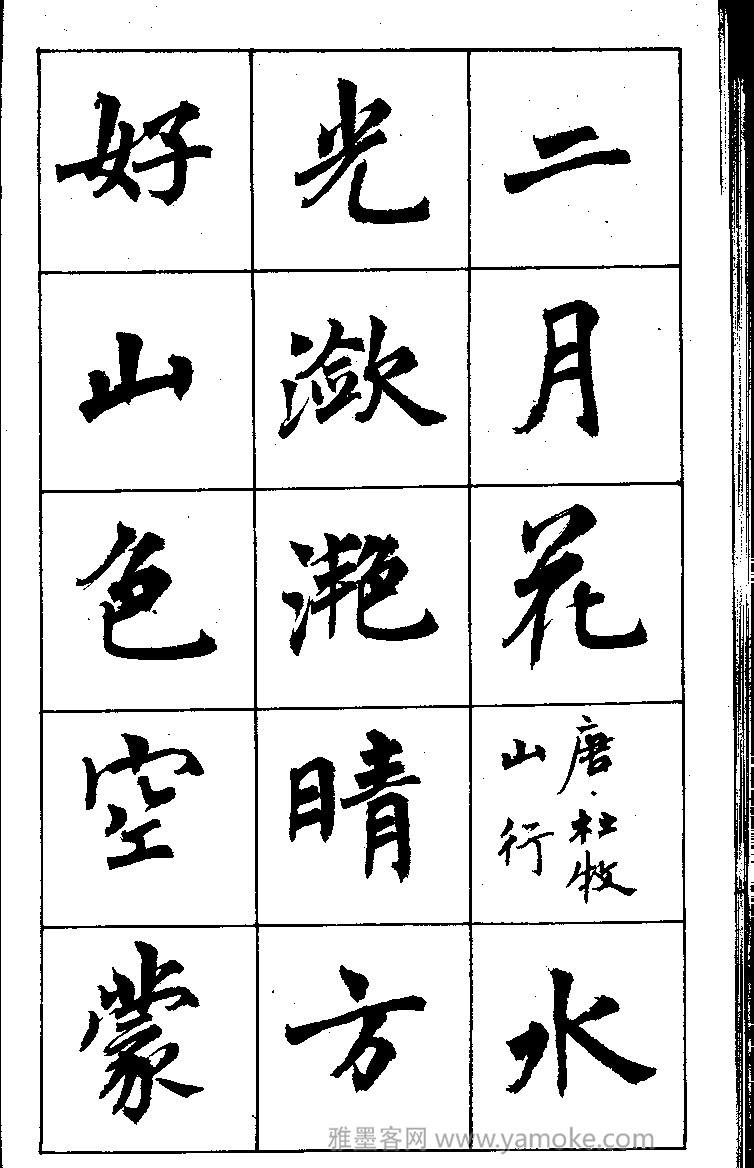 二月花
唐·杜牧
山行
水
光潋滟晴方
好山色空蒙
雅墨客网 www.yamoke.com